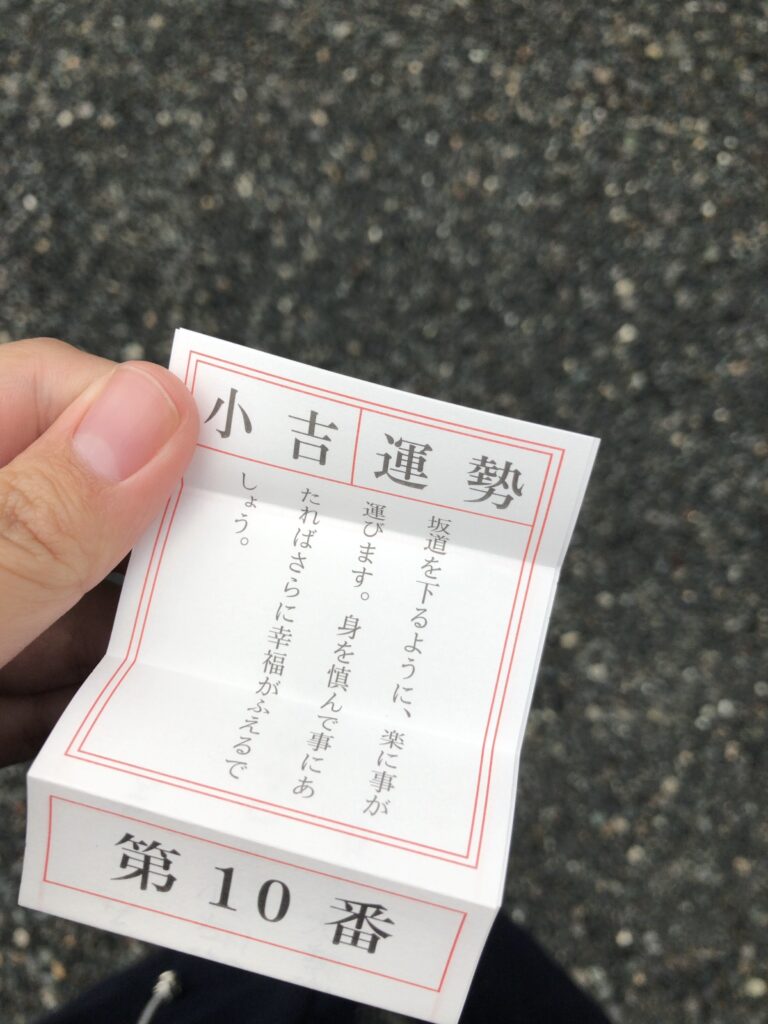 小吉 運勢
坂道を下るように、楽に事が
運びます。身を慎んで事にあ
たればさらに幸福がふえるで
しょう。
第10番